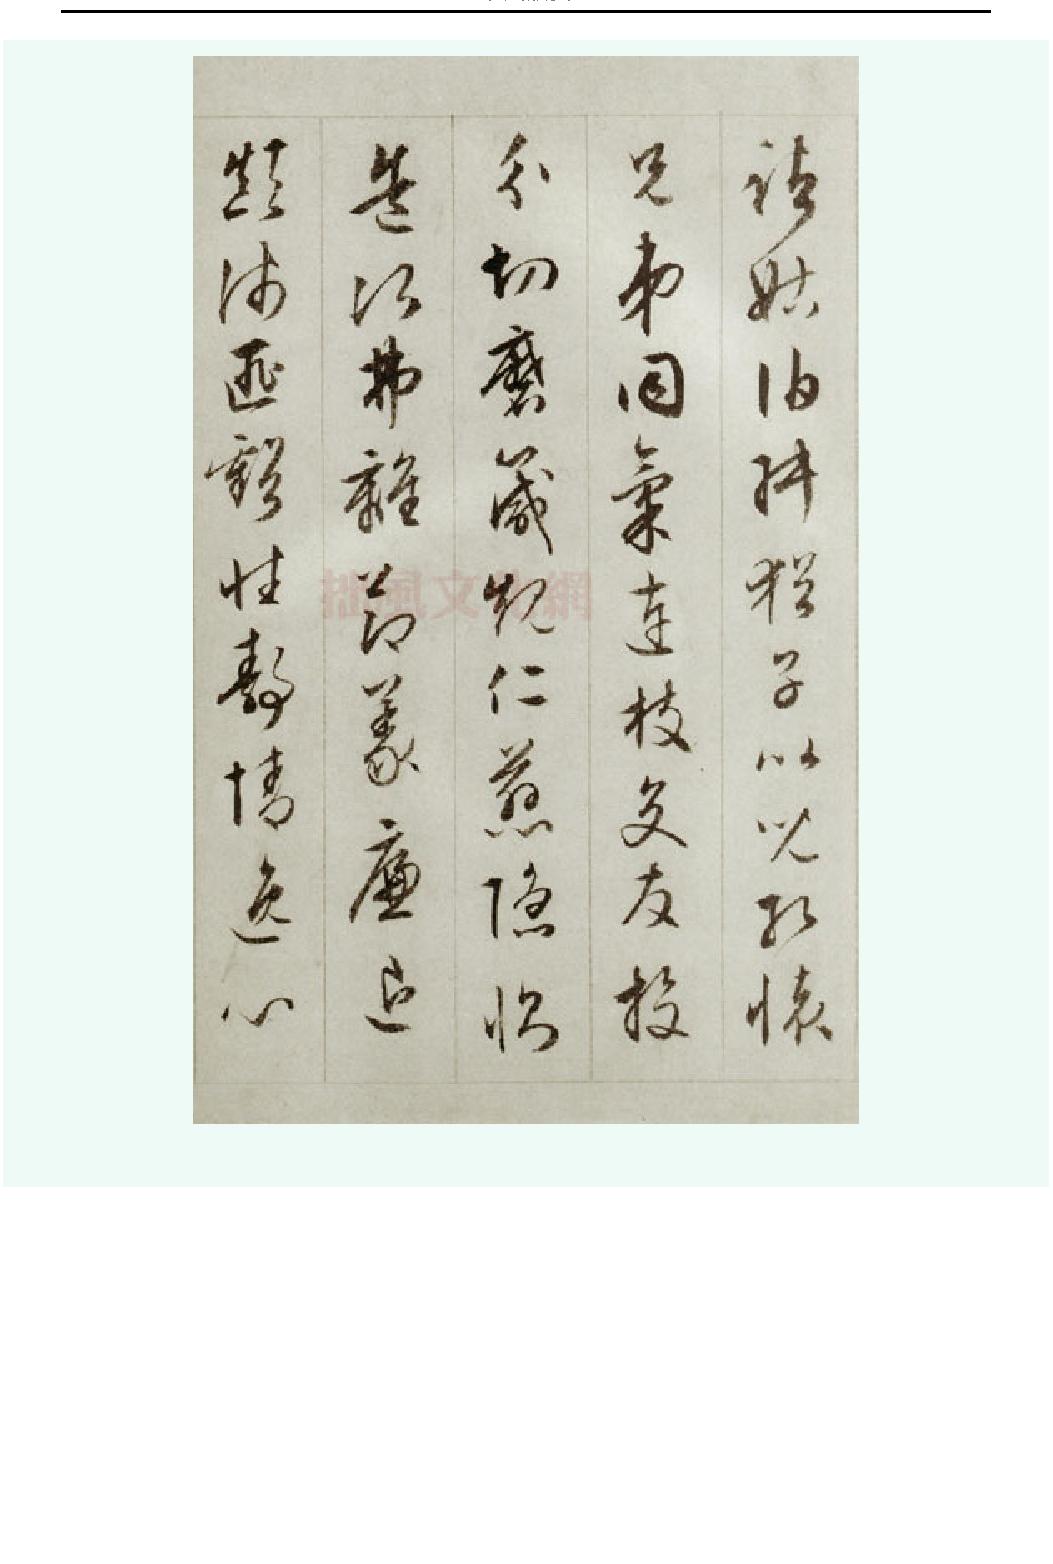 諸姑伯叔猶子比兒孔懷
兄弟同氣連枝交友投
分切磨箴規仁慈隱惻
造次弗離節義廉退
顛沛匪虧性靜情逸心
拙風文化網